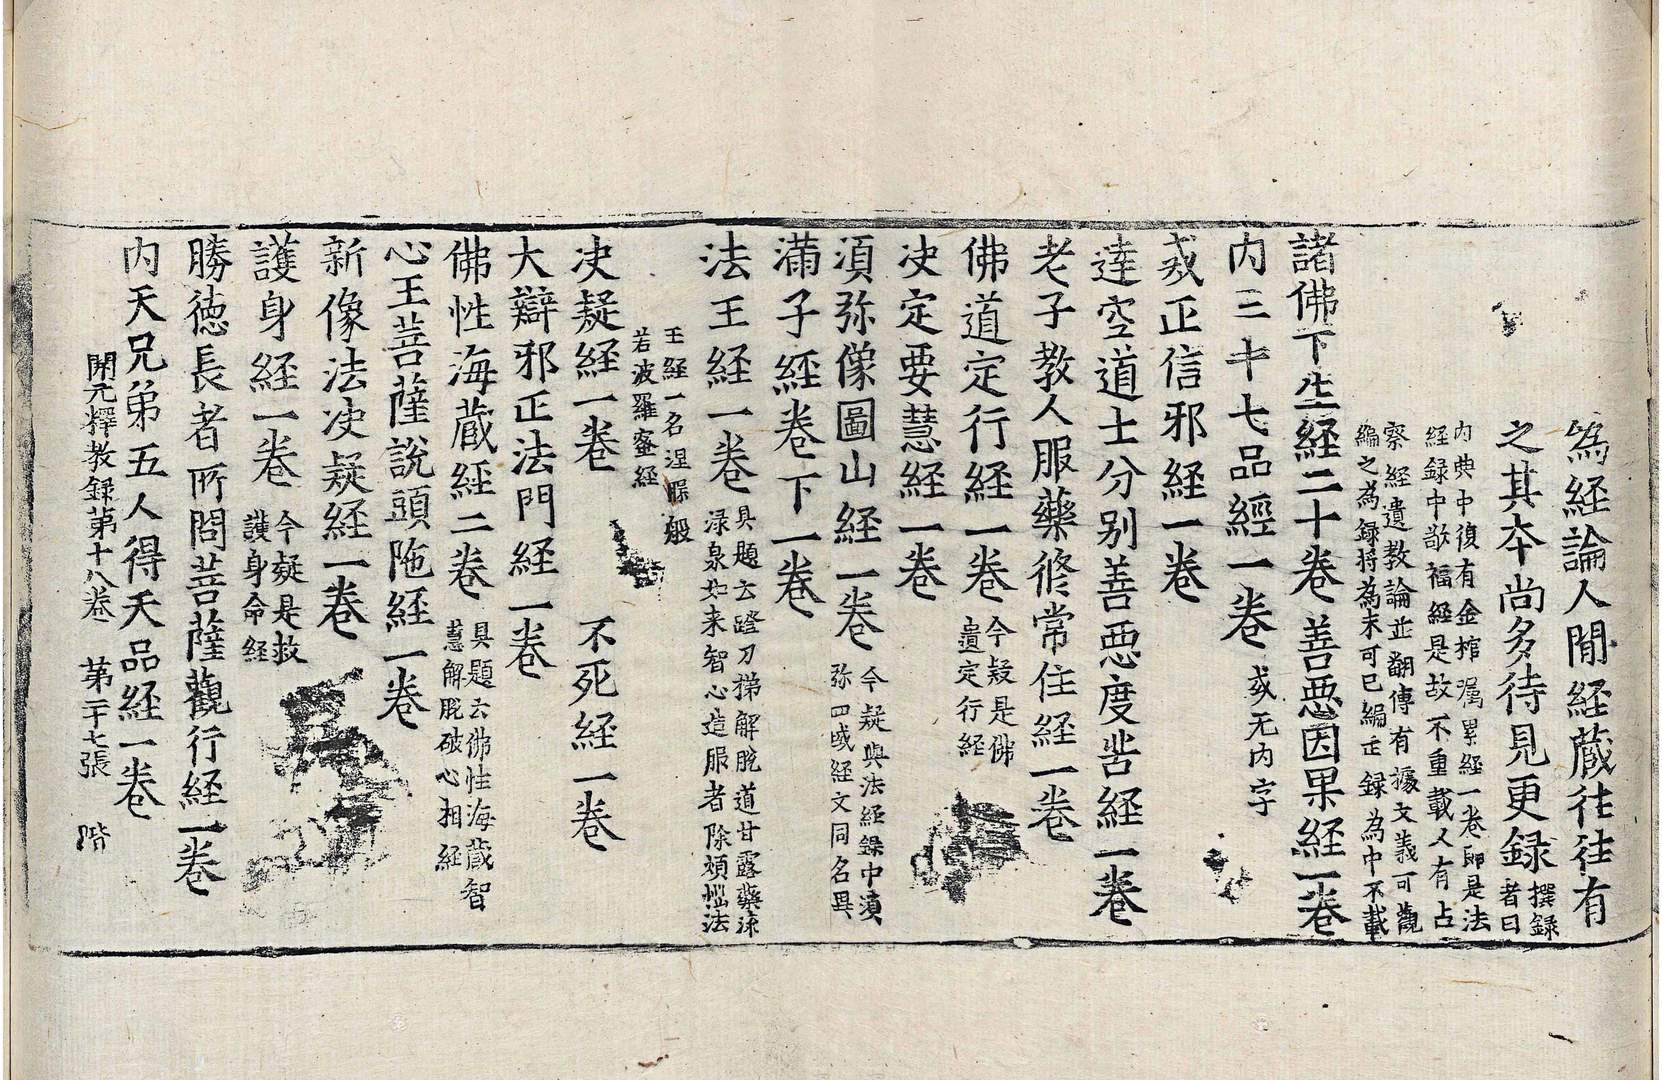 為經論人間経蔵往往有
之其本尚多待見更録撰録者曰
内典中復有金棺囑累経一卷即是法
経録中敬福経是故不重載人有占
察経遺教論並翻傳有據文義可觀
編之為録將為未可已編正録為中不載
諸佛下生経二十卷　善惡因果経一卷
内三十七品經一卷　或无内字
或正信邪経一卷
達空道士分別善惡度苦経一卷
老子教人服藥修常住経一卷
佛道定行経一卷今疑是佛遺定行経
決定要慧経一卷
湏弥像圖山経一卷今疑與法経録中湏弥四域経文同名異
滿子経卷下一卷
法王経一卷具題云蹬刀梯解脫道甘露藥沫渌泉如来智心造服者除煩惱法
王経一名涅槃般若波羅蜜経
決疑経一卷　不死経一卷
大辯邪正法門経一卷
佛性海蔵経二卷具題云佛性海蔵智慧解脫破心相経
心王菩薩說頭陁経一卷
新像法决疑経一卷
護身経一卷今疑是救護身命経
勝徳長者所問菩薩觀行経一卷
内天兄弟五人得天品経一卷
開元釋教録第十八卷　第二十七張　階